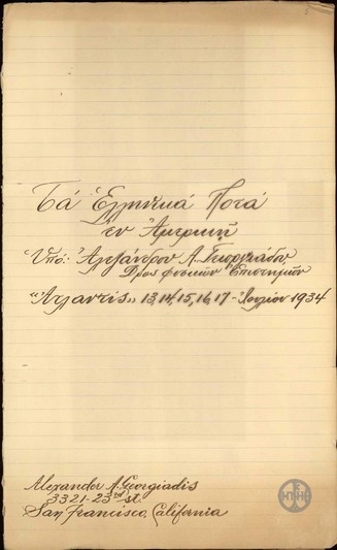 Τά Ἑλληνικά Ποτά
ἐν Ἀμερικῇ
Ὑπό: Ἀλεξάνδρου Α. Γεωργιάδου
Δρος φυσικῶν Ἐπιστημῶν
"Ἀτλαντίς" 13, 14, 15, 16, 17 - Ἰουλίου 1934
Alexander A. Georgiadis
3321-23rd st.
San Francisco, California